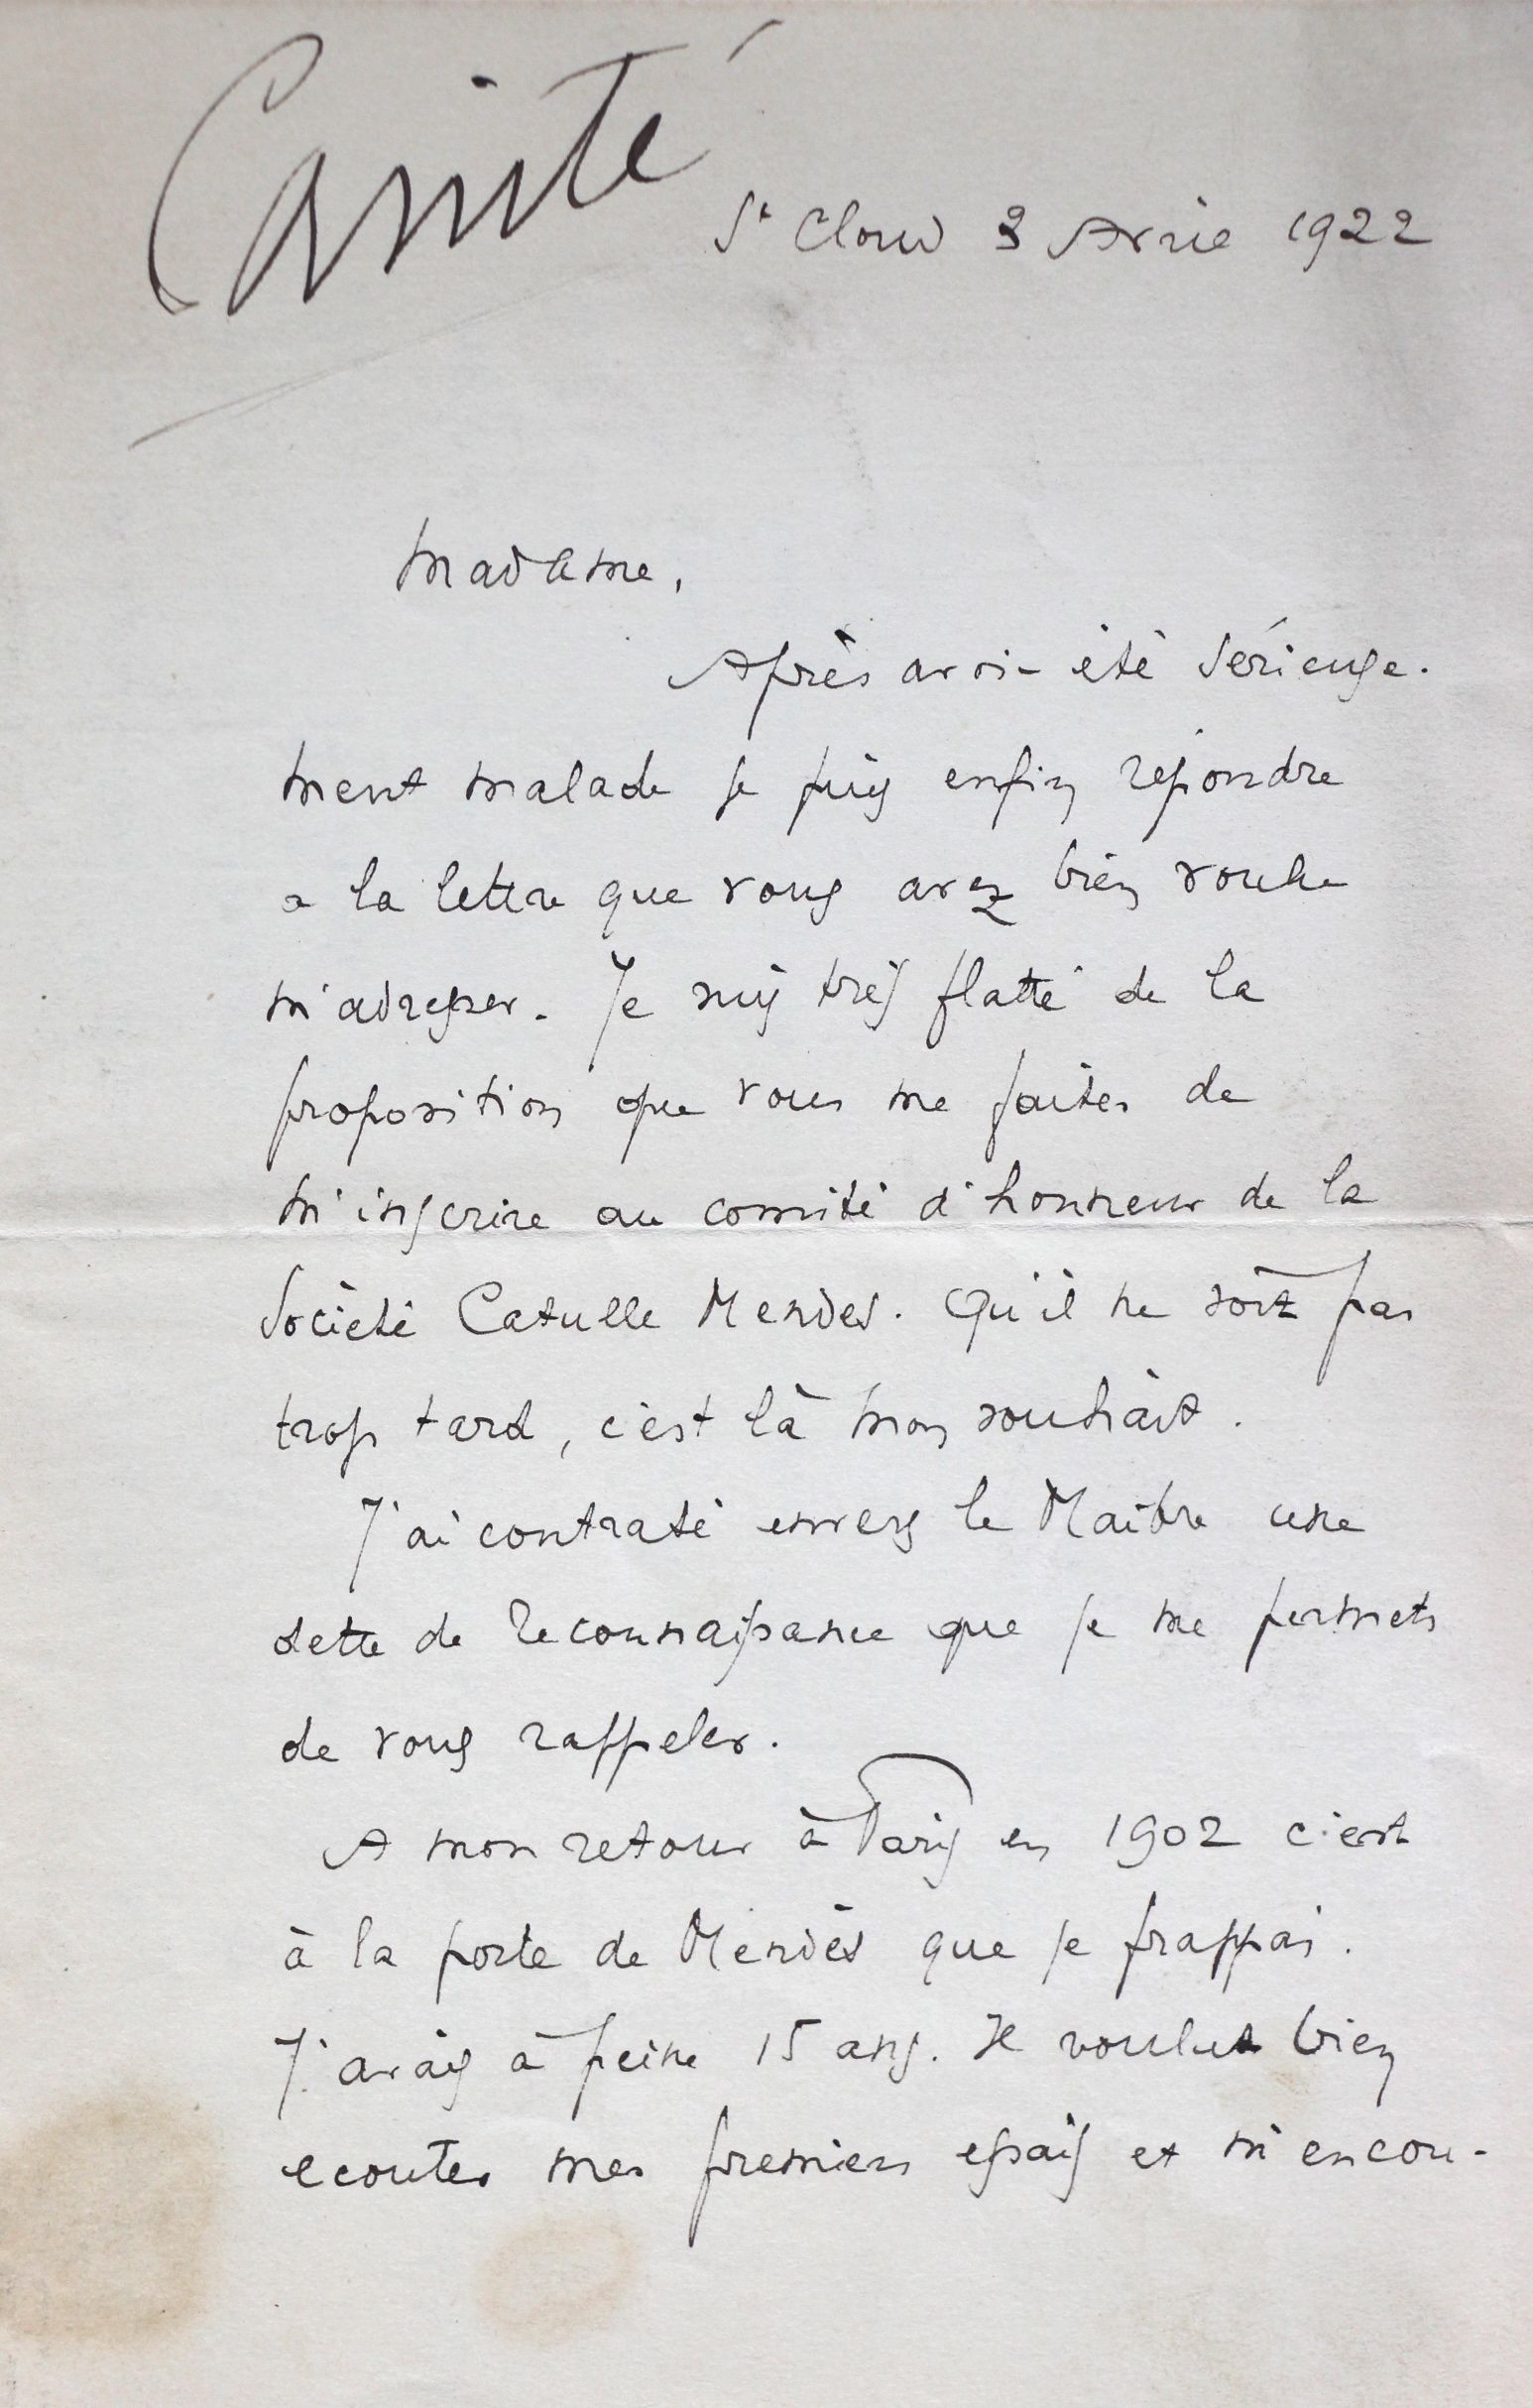 Comité
St Cloud 3 Avril 1922
Madame,
Après avoir été sérieuse-
ment malade je puis enfin répondre
a la lettre que vous avez bien voulu
m'adresser. Je suis très flatté de la
proposition que vous me faites de
m'inscrire au comité d'honneur de la
Société Catulle Mendes. Qu'il ne soit pas
trop tard, c'est là mon souhait.
J'ai contraté envers le Maître une
dette de reconnaissance que je me permets
de vous rappeler.
A mon retour à Paris en 1902 c'est
à la porte de Mendès que je frappai.
J'avais à peine 15 ans. Il voulut bien
ecouter mes premiers essais et m'encou-